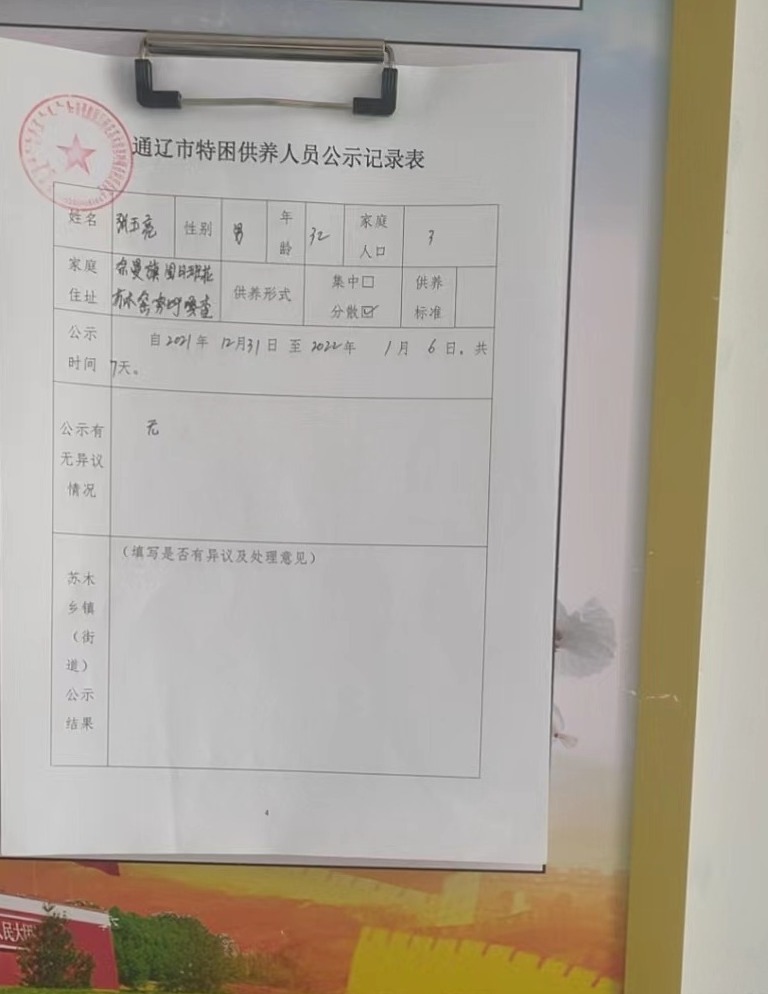 通辽市特困供养人员公示记录表
姓名 张五亮 性别 男 年龄 32 家庭人口 3
家庭住址 奈曼旗固日班花
苏木 嘎查 供养形式 集中□ 分散☑ 供养标准
公示时间 自2021年 12月31日 至 2022年 1月 6日。共
7天。
公示有无异议情况 无
苏木乡镇（街道）公示结果 （填写是否有异议及处理意见）
4